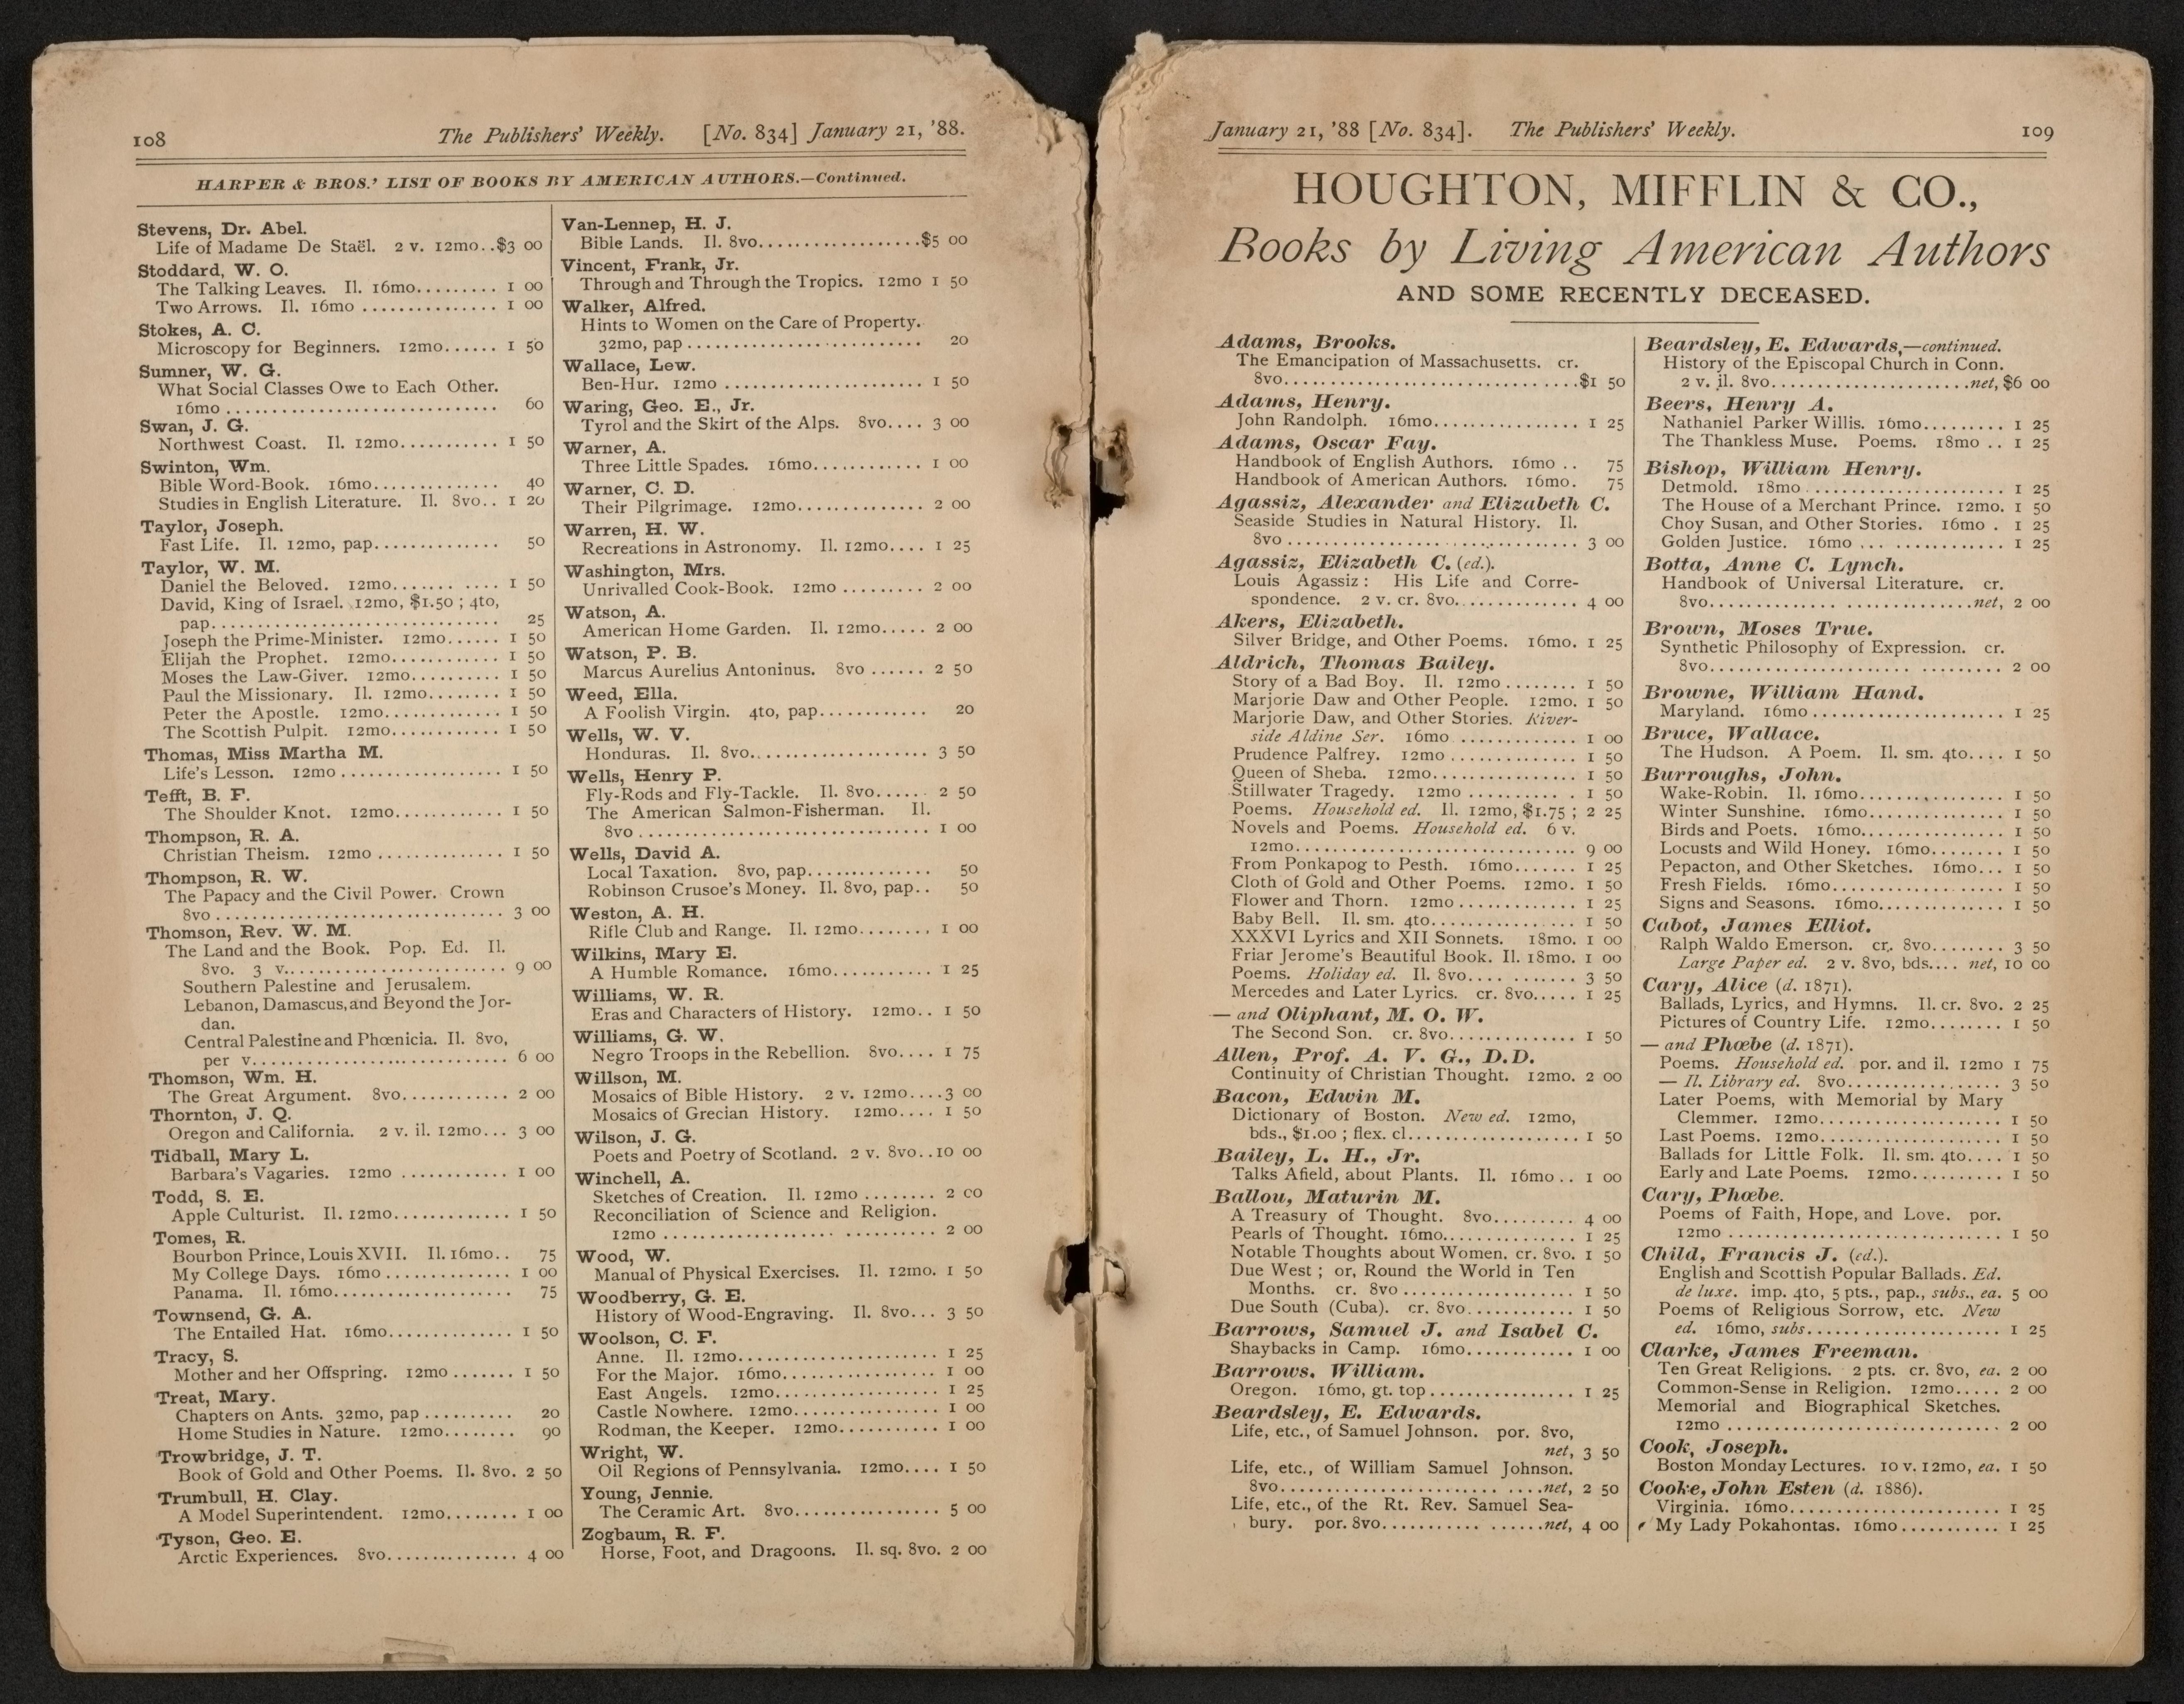 108
The Publishers' Weekly. [No. 834] January 21, '88.
HARPER & BROS.' LIST OF BOOKS BY AMERICAN AUTHORS.—Continued.
Stevens, Dr. Abel.
Life of Madame De Staël. 2 v. 12mo..$3 00
Stoddard, W. O.
The Talking Leaves. Il. 16mo......... 1 00
Two Arrows. Il. 16mo .............. 1 00
Stokes, A. C.
Microscopy for Beginners. 12mo...... 1 50
Sumner, W. G.
What Social Classes Owe to Each Other.
16mo ............................ 60
Swan, J. G.
Northwest Coast. Il. 12mo.......... 1 50
Swinton, Wm.
Bible Word-Book. 16mo............. 40
Studies in English Literature. Il. 8vo.. 1 20
Taylor, Joseph.
Fast Life. Il. 12mo, pap............. 50
Taylor, W. M.
Daniel the Beloved. 12mo....... .... 1 50
David, King of Israel. 12mo, $1.50 ; 4to,
pap.............................. 25
Joseph the Prime-Minister. 12mo...... 1 50
Elijah the Prophet. 12mo............ 1 50
Moses the Law-Giver. 12mo.......... 1 50
Paul the Missionary. Il. 12mo........ 1 50
Peter the Apostle. 12mo............. 1 50
The Scottish Pulpit. 12mo............ 1 50
Thomas, Miss Martha M.
Life's Lesson. 12mo .................. 1 50
Tefft, B. F.
The Shoulder Knot. 12mo............ 1 50
Thompson, R. A.
Christian Theism. 12mo .............. 1 50
Thompson, R. W.
The Papacy and the Civil Power. Crown
8vo .............................. 3 00
Thomson, Rev. W. M.
The Land and the Book. Pop. Ed. Il.
8vo. 3 v........................ 9 00
Southern Palestine and Jerusalem.
Lebanon, Damascus, and Beyond the Jor-
dan.
Central Palestine and Phœnicia. Il. 8vo,
per v........................... 6 00
Thomson, Wm. H.
The Great Argument. 8vo............ 2 00
Thornton, J. Q.
Oregon and California. 2 v. il. 12mo... 3 00
Tidball, Mary L.
Barbara's Vagaries. 12mo ............ 1 00
Todd, S. E.
Apple Culturist. Il. 12mo............. 1 50
Tomes, R.
Bourbon Prince, Louis XVII. Il. 16mo.. 75
My College Days. 16mo ............. 1 00
Panama. Il. 16mo.................... 75
Townsend, G. A.
The Entailed Hat. 16mo............. 1 50
Tracy, S.
Mother and her Offspring. 12mo ....... 1 50
Treat, Mary.
Chapters on Ants. 32mo, pap .......... 20
Home Studies in Nature. 12mo........ 90
Trowbridge, J. T.
Book of Gold and Other Poems. Il. 8vo. 2 50
Trumbull, H. Clay.
A Model Superintendent. 12mo........ 1 00
Tyson, Geo. E.
Arctic Experiences. 8vo.............. 4 00
Van-Lennep, H. J.
Bible Lands. Il. 8vo..................$5 00
Vincent, Frank, Jr.
Through and Through the Tropics. 12mo 1 50
Walker, Alfred.
Hints to Women on the Care of Property.
32mo, pap ........................ 20
Wallace, Lew.
Ben-Hur. 12mo ...................... 1 50
Waring, Geo. E., Jr.
Tyrol and the Skirt of the Alps. 8vo.... 3 00
Warner, A.
Three Little Spades. 16mo............ 1 00
Warner, C. D.
Their Pilgrimage. 12mo............. 2 00
Warren, H. W.
Recreations in Astronomy. Il. 12mo.... 1 25
Washington, Mrs.
Unrivalled Cook-Book. 12mo ......... 2 00
Watson, A.
American Home Garden. Il. 12mo..... 2 00
Watson, P. B.
Marcus Aurelius Antoninus. 8vo ...... 2 50
Weed, Ella.
A Foolish Virgin. 4to, pap............ 20
Wells, W. V.
Honduras. Il. 8vo.................... 3 50
Wells, Henry P.
Fly-Rods and Fly-Tackle. Il. 8vo...... 2 50
The American Salmon-Fisherman. Il.
8vo .............................. 1 00
Wells, David A.
Local Taxation. 8vo, pap............. 50
Robinson Crusoe's Money. Il. 8vo, pap.. 50
Weston, A. H.
Rifle Club and Range. Il. 12mo........ 1 00
Wilkins, Mary E.
A Humble Romance. 16mo........... 1 25
Williams, W. R.
Eras and Characters of History. 12mo.. 1 50
Williams, G. W.
Negro Troops in the Rebellion. 8vo.... 1 75
Willson, M.
Mosaics of Bible History. 2 v. 12mo....3 00
Mosaics of Grecian History. 12mo.... 1 50
Wilson, J. G.
Poets and Poetry of Scotland. 2 v. 8vo..10 00
Winchell, A.
Sketches of Creation. Il. 12mo ........ 2 00
Reconciliation of Science and Religion.
12mo ................... .......... 2 00
Wood, W.
Manual of Physical Exercises. Il. 12mo. 1 50
Woodberry, G. E.
History of Wood-Engraving. Il. 8vo... 3 50
Woolson, C. F.
Anne. Il. 12mo...................... 1 25
For the Major. 16mo................. 1 00
East Angels. 12mo.................. 1 25
Castle Nowhere. 12mo............... 1 00
Rodman, the Keeper. 12mo........... 1 00
Wright, W.
Oil Regions of Pennsylvania. 12mo.... 1 50
Young, Jennie.
The Ceramic Art. 8vo............... 5 00
Zogbaum, R. F.
Horse, Foot, and Dragoons. Il. sq. 8vo. 2 00
January 21, '88 [No. 834]. The Publishers' Weekly.
109
HOUGHTON, MIFFLIN & CO.,
Books by Living American Authors
AND SOME RECENTLY DECEASED.
Adams, Brooks.
The Emancipation of Massachusetts. cr.
8vo................................$1 50
Adams, Henry.
John Randolph. 16mo................ 1 25
Adams, Oscar Fay.
Handbook of English Authors. 16mo .. 75
Handbook of American Authors. 16mo. 75
Agassiz, Alexander and Elizabeth C.
Seaside Studies in Natural History. Il.
8vo ............................... 3 00
Agassiz, Elizabeth C. (ed.).
Louis Agassiz : His Life and Corre-
spondence. 2 v. cr. 8vo............. 4 00
Akers, Elizabeth.
Silver Bridge, and Other Poems. 16mo. 1 25
Aldrich, Thomas Bailey.
Story of a Bad Boy. Il. 12mo ........ 1 50
Marjorie Daw and Other People. 12mo. 1 50
Marjorie Daw, and Other Stories. River-
side Aldine Ser. 16mo ............. 1 00
Prudence Palfrey. 12mo ............. 1 50
Queen of Sheba. 12mo............... 1 50
Stillwater Tragedy. 12mo .......... . 1 50
Poems. Household ed. Il. 12mo, $1.75 ; 2 25
Novels and Poems. Household ed. 6 v.
12mo.............................. 9 00
From Ponkapog to Pesth. 16mo....... 1 25
Cloth of Gold and Other Poems. 12mo. 1 50
Flower and Thorn. 12mo ............ 1 25
Baby Bell. Il. sm. 4to................ 1 50
XXXVI Lyrics and XII Sonnets. 18mo. 1 00
Friar Jerome's Beautiful Book. Il. 18mo. 1 00
Poems. Holiday ed. Il. 8vo.... ....... 3 50
Mercedes and Later Lyrics. cr. 8vo..... 1 25
— and Oliphant, M. O. W.
The Second Son. cr. 8vo............. 1 50
Allen, Prof. A. V. G., D.D.
Continuity of Christian Thought. 12mo. 2 00
Bacon, Edwin M.
Dictionary of Boston. New ed. 12mo,
bds., $1.00 ; flex. cl................... 1 50
Bailey, L. H., Jr.
Talks Afield, about Plants. Il. 16mo.. 1 00
Ballou, Maturin M.
A Treasury of Thought. 8vo......... 4 00
Pearls of Thought. 16mo.............. 1 25
Notable Thoughts about Women. cr. 8vo. 1 50
Due West ; or, Round the World in Ten
Months. cr. 8vo ................... 1 50
Due South (Cuba). cr. 8vo........... 1 50
Barrows, Samuel J. and Isabel C.
Shaybacks in Camp. 16mo........... 1 00
Barrows, William.
Oregon. 16mo, gt. top ............... 1 25
Beardsley, E. Edwards.
Life, etc., of Samuel Johnson. por. 8vo,
net, 3 50
Life, etc., of William Samuel Johnson.
8vo....................... ....net, 2 50
Life, etc., of the Rt. Rev. Samuel Sea-
bury. por. 8vo.......... ......net, 4 00
Beardsley, E. Edwards,—continued.
History of the Episcopal Church in Conn.
2 v. il. 8vo.....................net, $6 00
Beers, Henry A.
Nathaniel Parker Willis. 16mo......... 1 25
The Thankless Muse. Poems. 18mo .. 1 25
Bishop, William Henry.
Detmold. 18mo ..................... 1 25
The House of a Merchant Prince. 12mo. 1 50
Choy Susan, and Other Stories. 16mo . 1 25
Golden Justice. 16mo ... ............ 1 25
Botta, Anne C. Lynch.
Handbook of Universal Literature. cr.
8vo............. ..............net, 2 00
Brown, Moses True.
Synthetic Philosophy of Expression. cr.
8vo...................... ......... 2 00
Browne, William Hand.
Maryland. 16mo ..................... 1 25
Bruce, Wallace.
The Hudson. A Poem. Il. sm. 4to.... 1 50
Burroughs, John.
Wake-Robin. Il. 16mo............... 1 50
Winter Sunshine. 16mo.............. 1 50
Birds and Poets. 16mo............... 1 50
Locusts and Wild Honey. 16mo........ 1 50
Pepacton, and Other Sketches. 16mo... 1 50
Fresh Fields. 16mo................... 1 50
Signs and Seasons. 16mo............. 1 50
Cabot, James Elliot.
Ralph Waldo Emerson. cr. 8vo........ 3 50
Large Paper ed. 2 v. 8vo, bds.... net, 10 00
Cary, Alice (d. 1871).
Ballads, Lyrics, and Hymns. Il. cr. 8vo. 2 25
Pictures of Country Life. 12mo........ 1 50
— and Phœbe (d. 1871).
Poems. Household ed. por. and il. 12mo 1 75
— Il. Library ed. 8vo................. 3 50
Later Poems, with Memorial by Mary
Clemmer. 12mo.................... 1 50
Last Poems. 12mo.................... 1 50
Ballads for Little Folk. Il. sm. 4to.... 1 50
Early and Late Poems. 12mo.......... 1 50
Cary, Phœbe.
Poems of Faith, Hope, and Love. por.
12mo .............................. 1 50
Child, Francis J. (ed.).
English and Scottish Popular Ballads. Ed.
de luxe. imp. 4to, 5 pts., pap., subs., ea. 5 00
Poems of Religious Sorrow, etc. New
ed. 16mo, subs..................... 1 25
Clarke, James Freeman.
Ten Great Religions. 2 pts. cr. 8vo, ea. 2 00
Common-Sense in Religion. 12mo..... 2 00
Memorial and Biographical Sketches.
12mo .............................. 2 00
Cook, Joseph.
Boston Monday Lectures. 10 v. 12mo, ea. 1 50
Cooke, John Esten (d. 1886).
Virginia. 16mo....................... 1 25
My Lady Pokahontas. 16mo........... 1 25